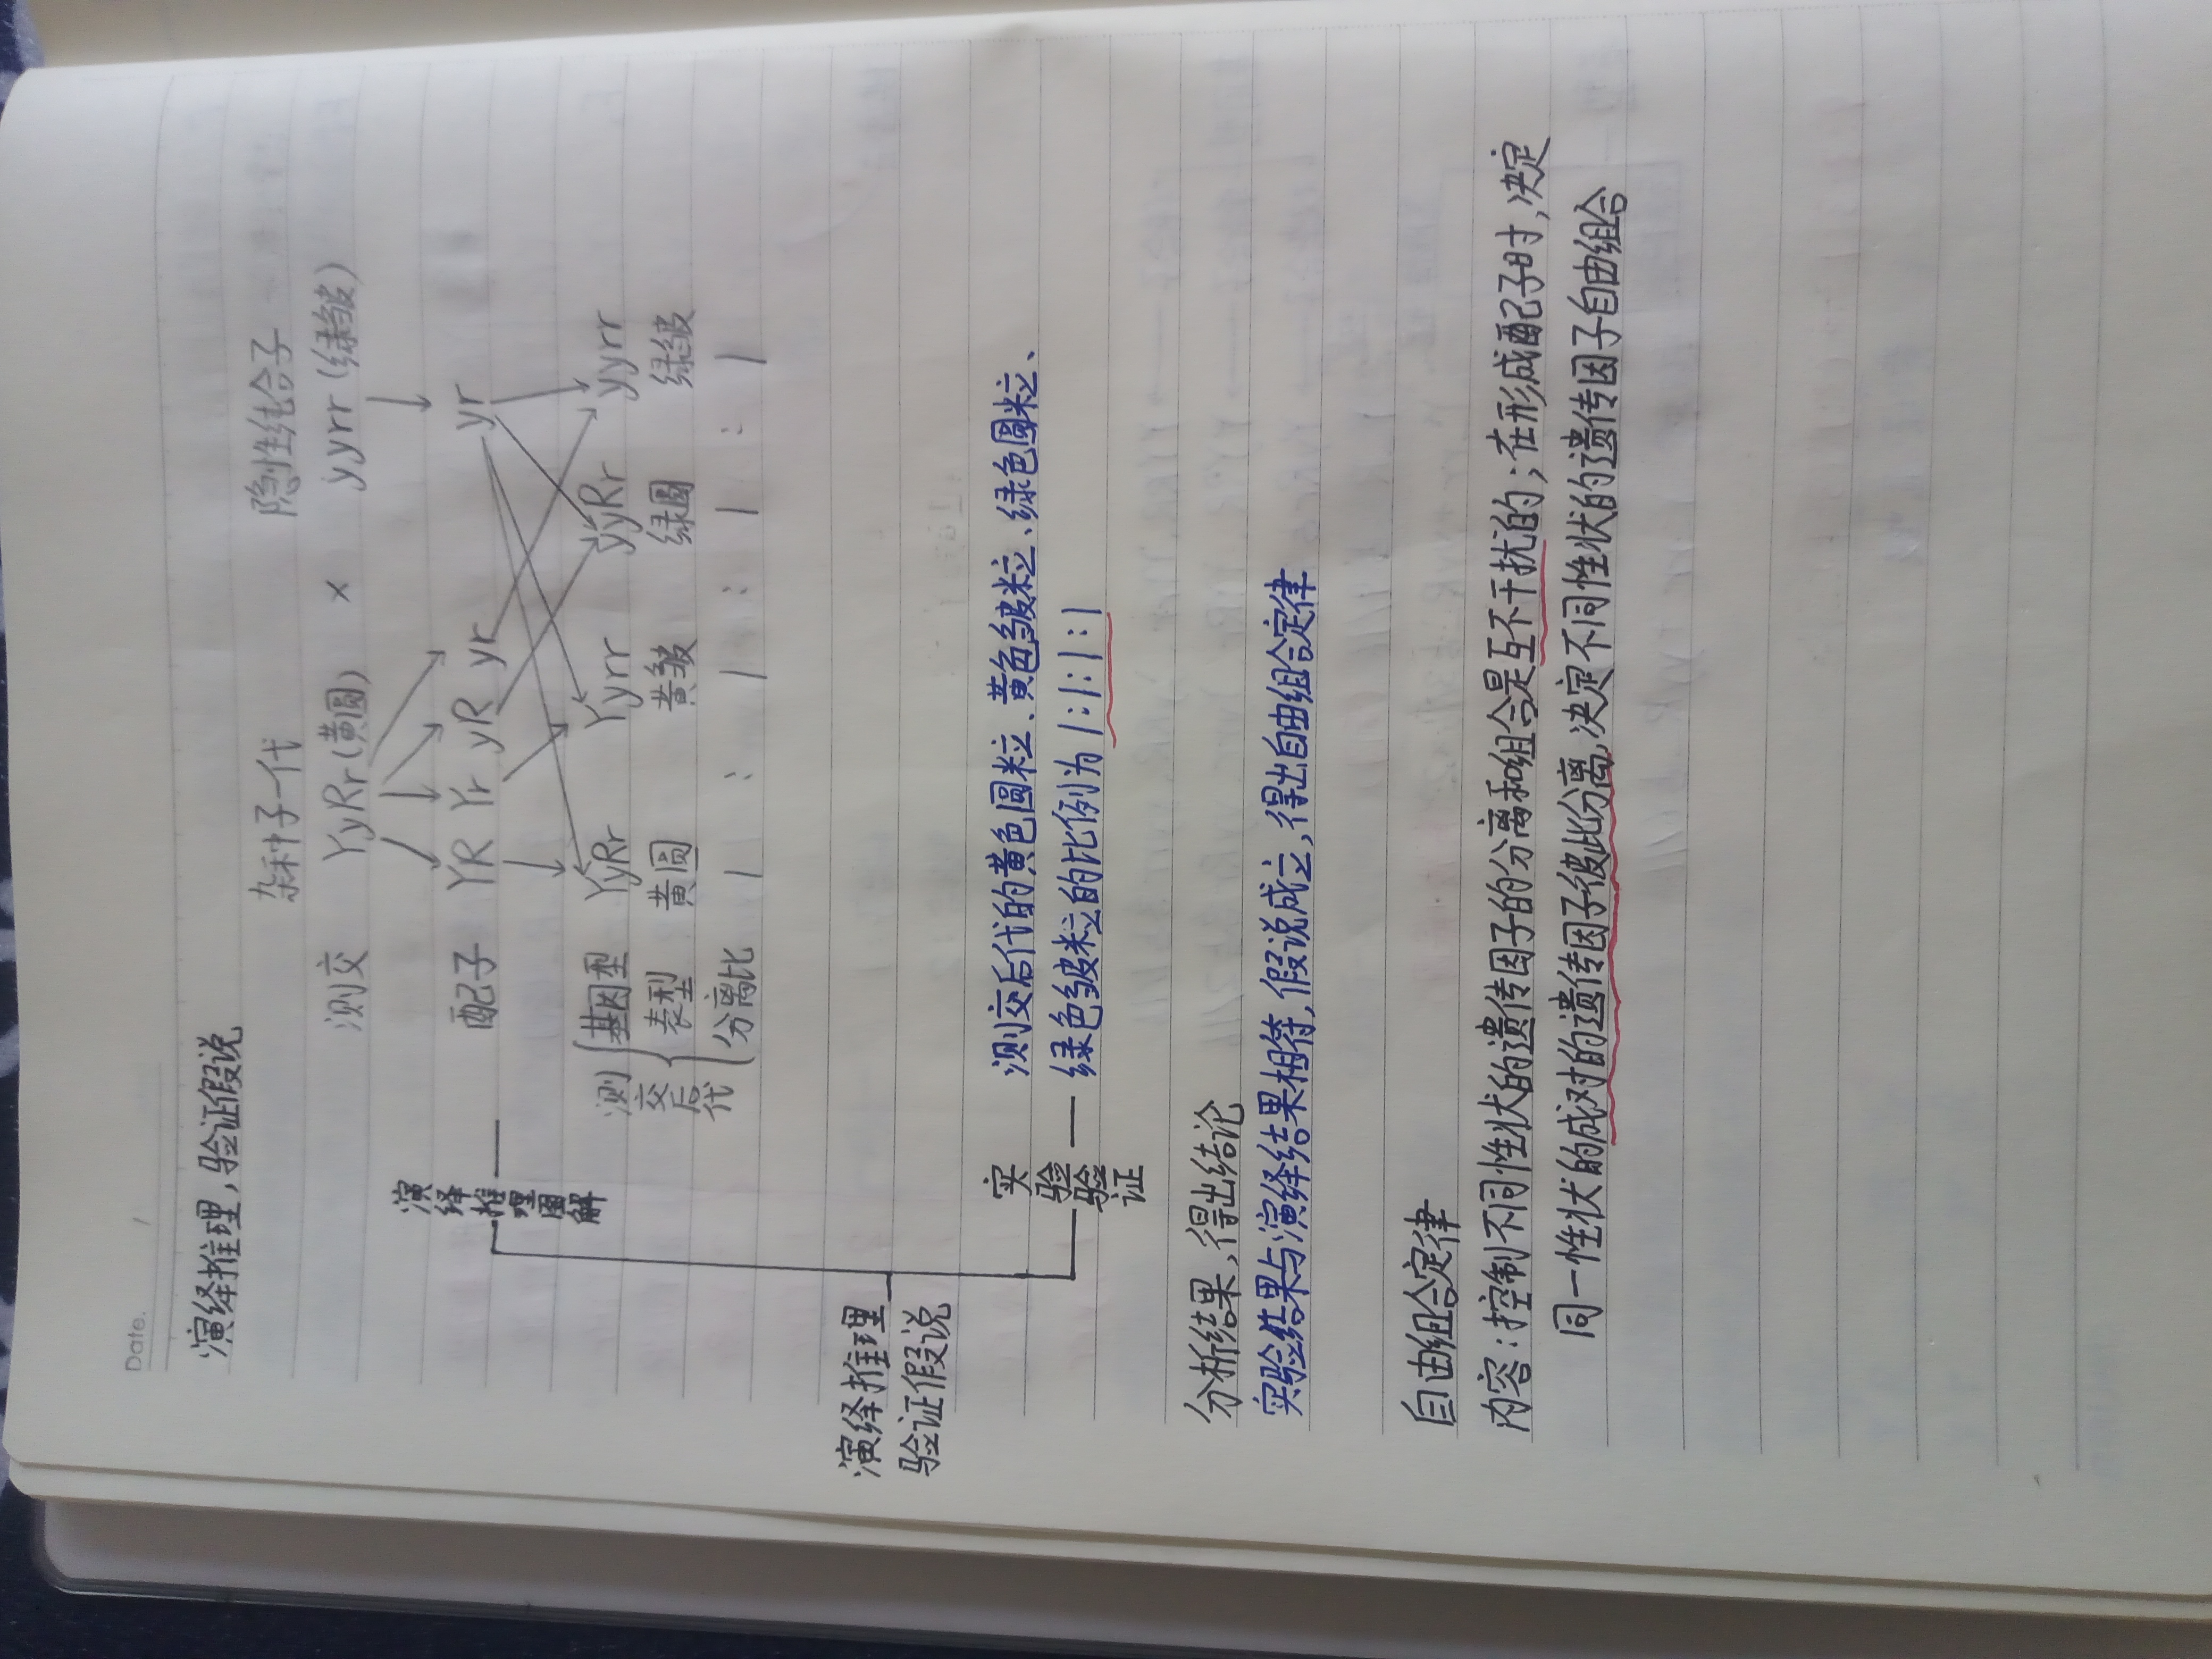 Date.      /
演绎推理,验证假说
杂种子一代      隐性纯合子
测交  YyRr(黄圆)  ×  yyrr(绿皱)
演绎推理图解
配子  YR Yr yR yr    yr
测交后代
基因型  YyRr  Yyrr  yyRr  yyrr
表型  黄圆  黄皱  绿圆  绿皱
分离比  1 : 1 : 1 : 1
演绎推理
验证假说
实验验证
测交后代的黄色圆粒、黄色皱粒、绿色圆粒、
绿色皱粒的比例为1:1:1:1
分析结果,得出结论
实验结果与演绎结果相符,假说成立,得出自由组合定律
自由组合定律
内容:控制不同性状的遗传因子的分离和组合是互不干扰的;在形成配子时,决定
同一性状的成对的遗传因子彼此分离,决定不同性状的遗传因子自由组合